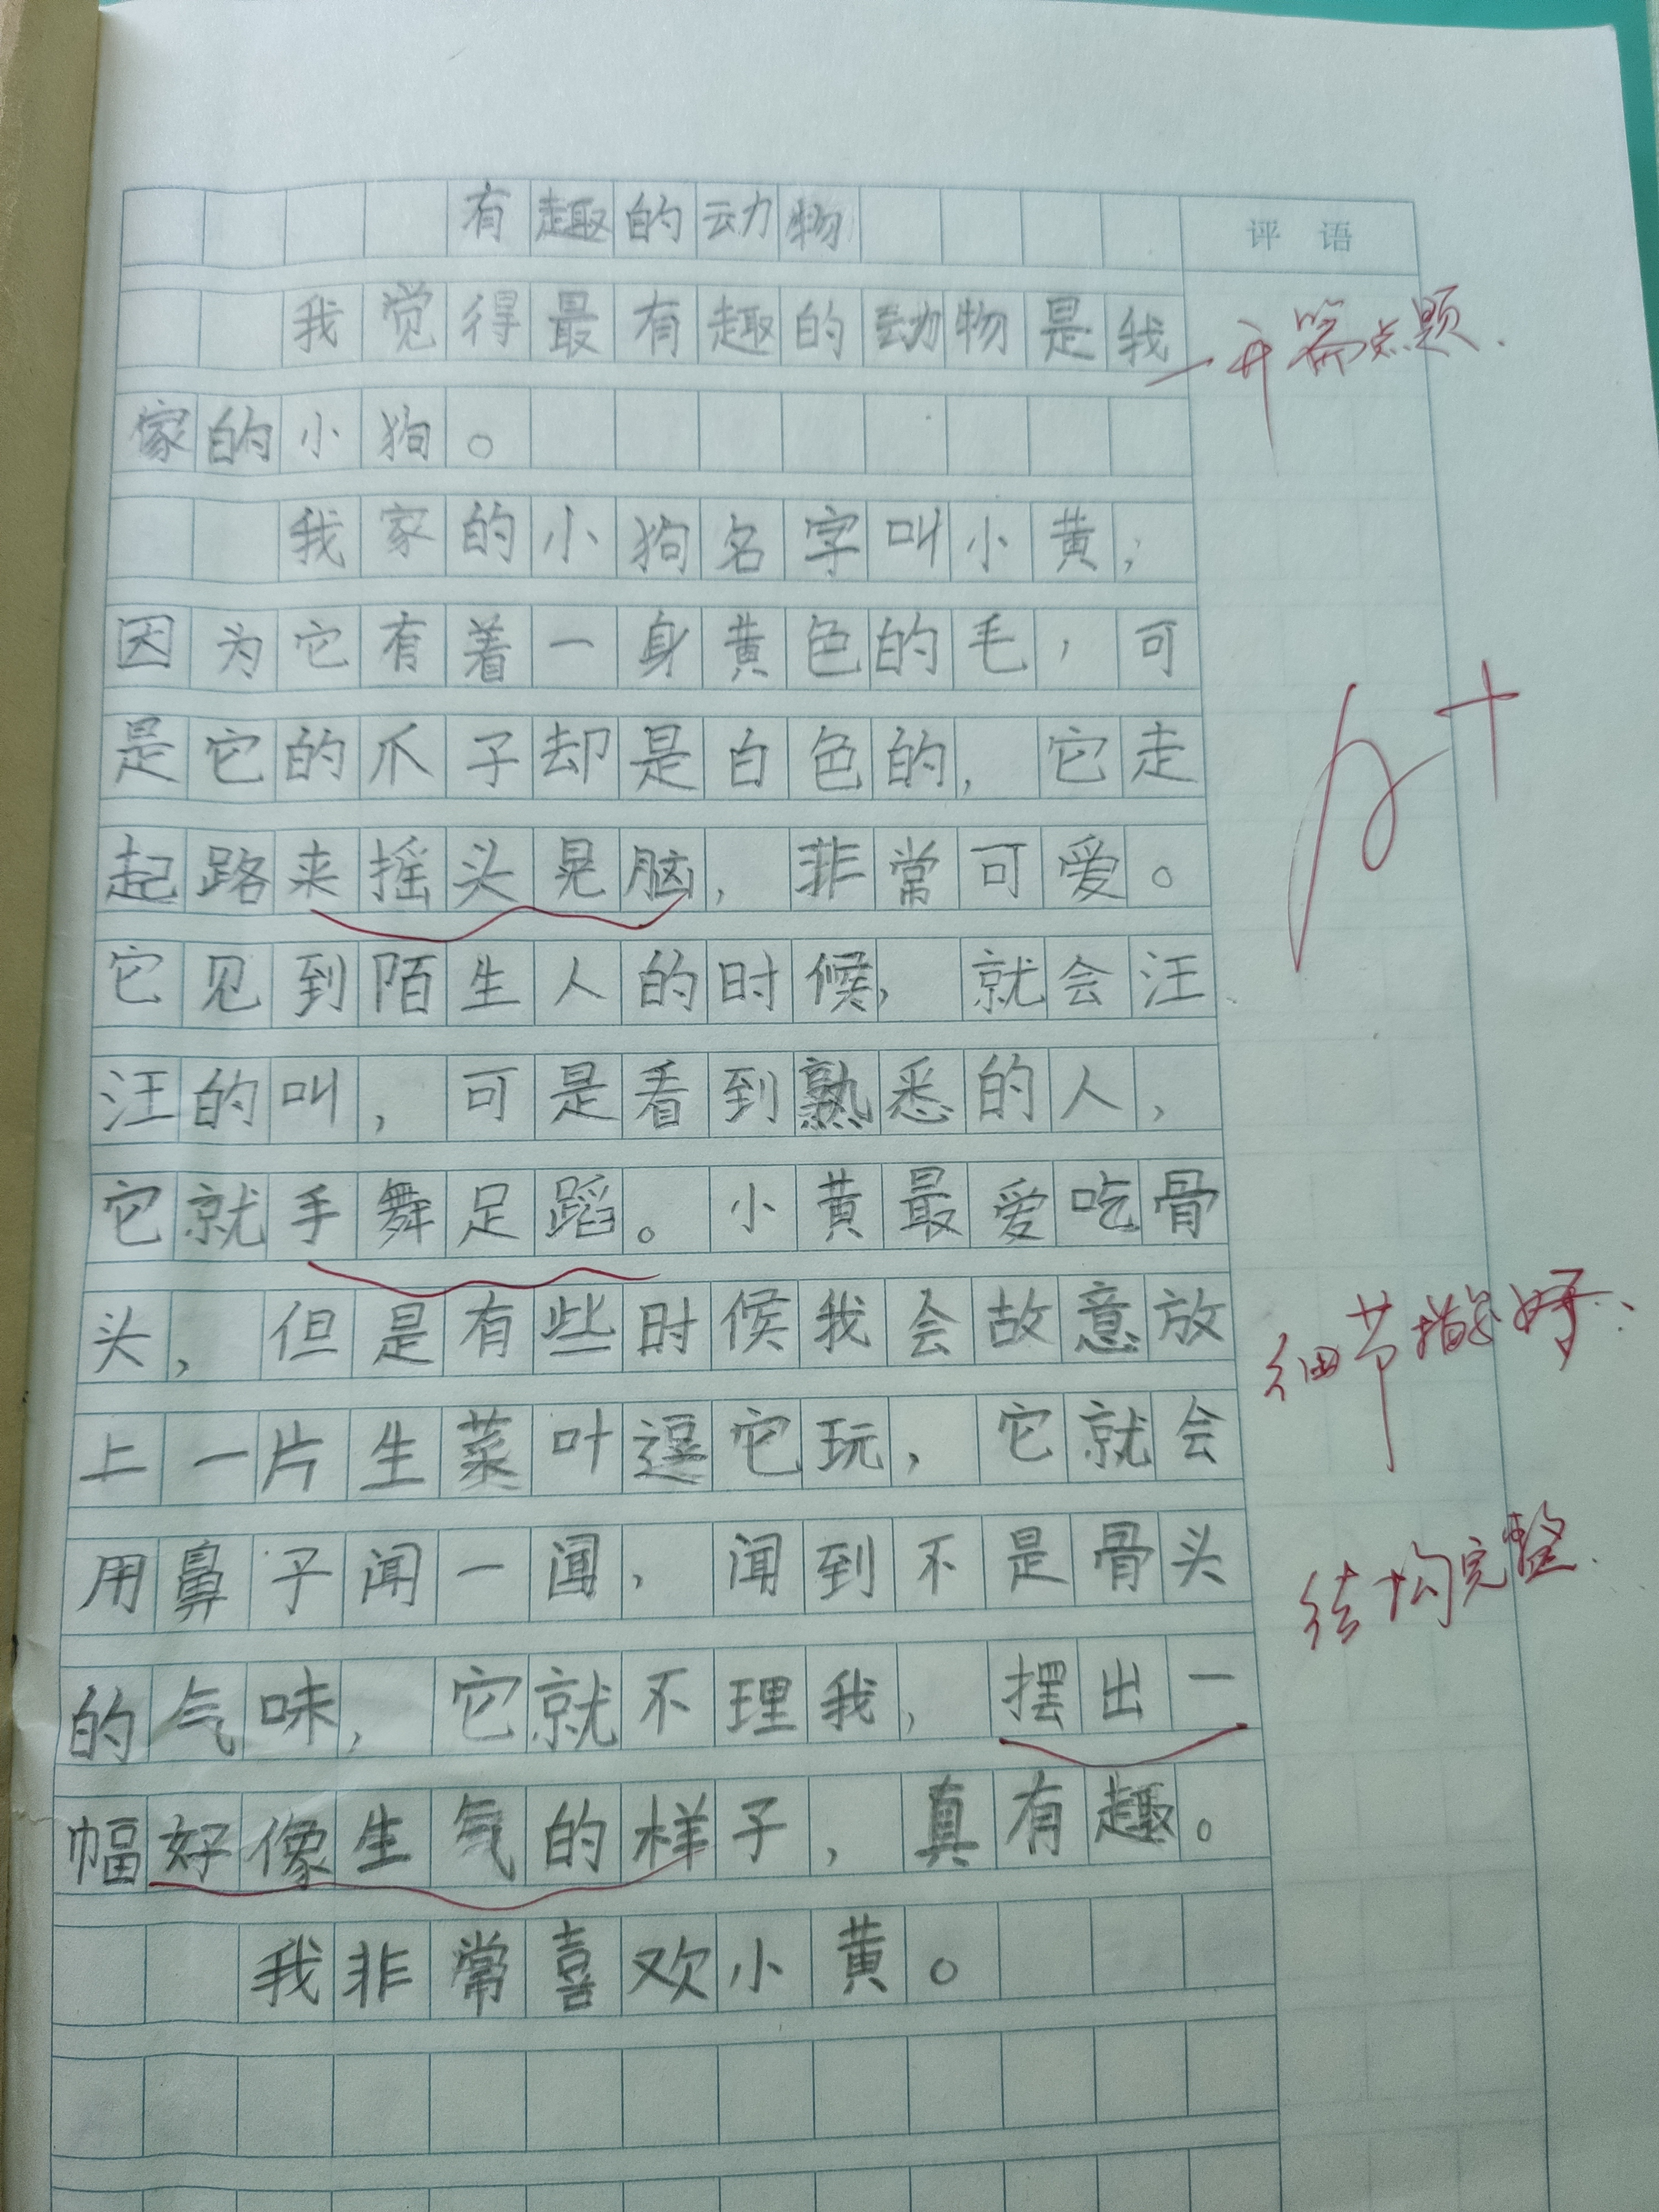 有趣的动物
评语
我觉得最有趣的动物是我
开篇点题.
家的小狗。
我家的小狗名字叫小黄，
因为它有着一身黄色的毛，可
是它的爪子却是白色的，它走
A+
起路来摇头晃脑，非常可爱。
它见到陌生人的时候，就会汪
汪的叫，可是看到熟悉的人，
它就手舞足蹈。小黄最爱吃骨
头，但是有些时候我会故意放
细节描写好.
上一片生菜叶逗它玩，它就会
用鼻子闻一闻，闻到不是骨头
结构完整.
的气味，它就不理我，摆出一
幅好像生气的样子，真有趣。
我非常喜欢小黄。